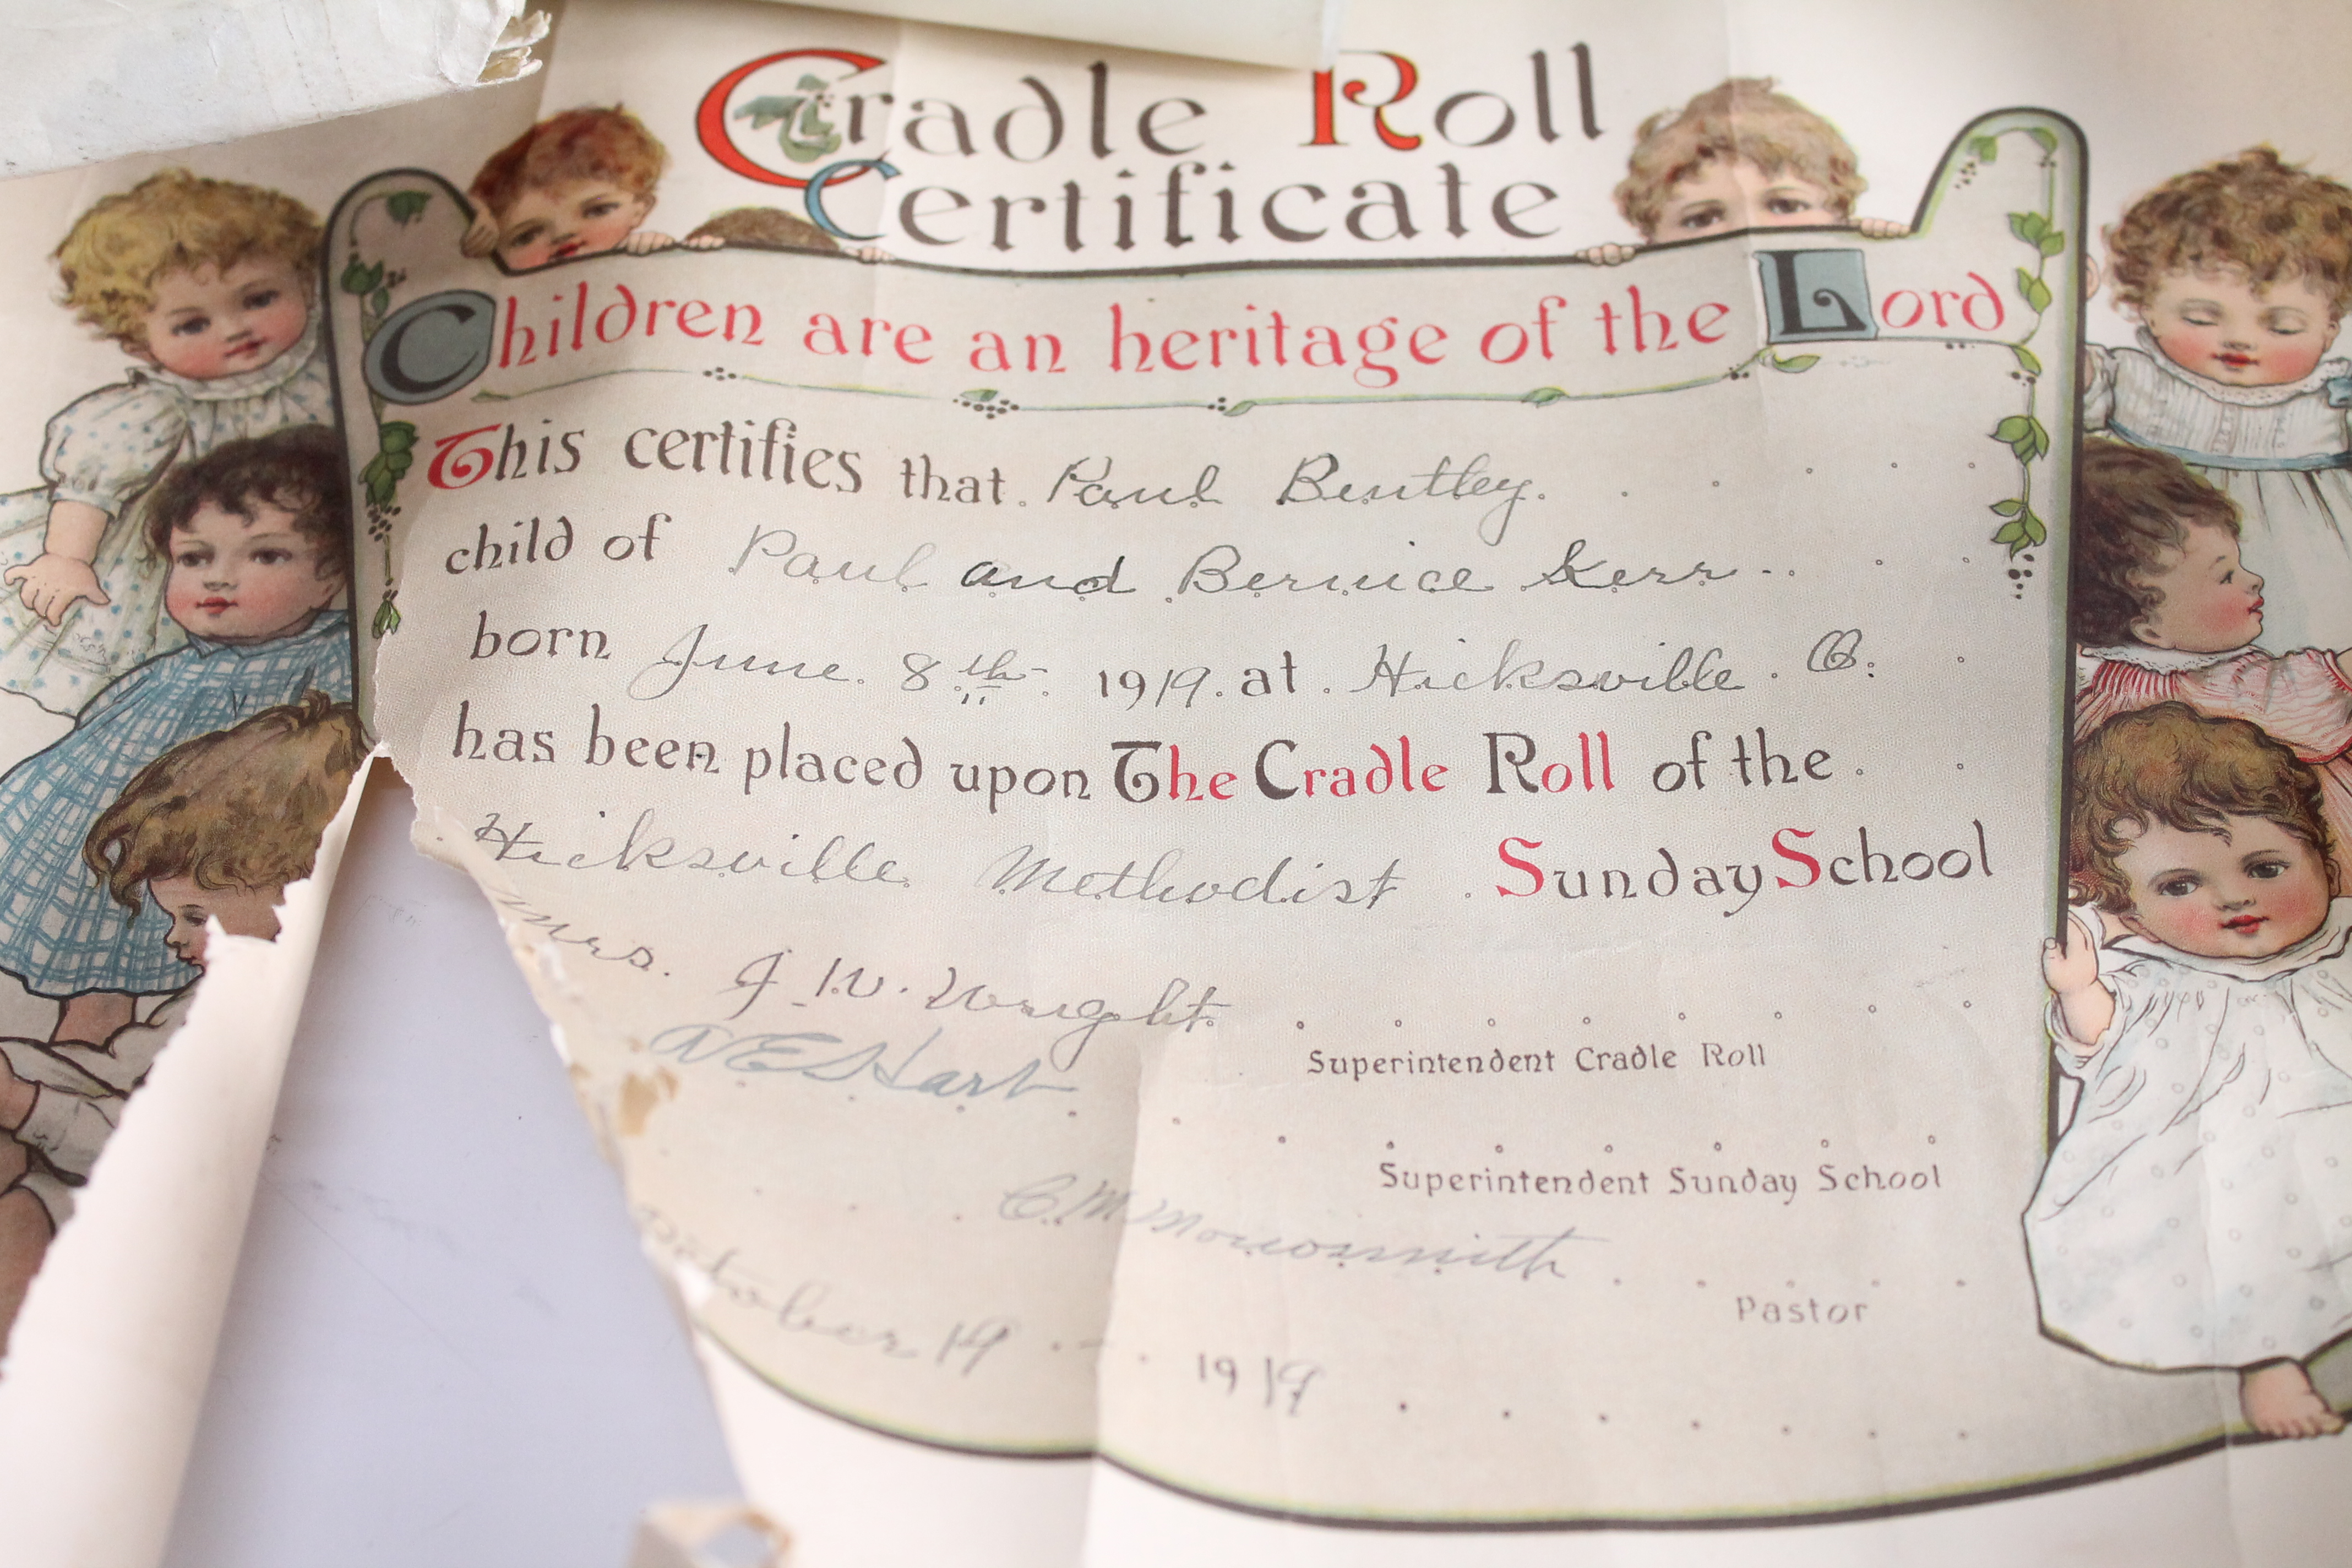 Cradle Roll
Certificate
Children are an heritage of the Lord
This certifies that Paul Bentley.
child of Paul and Bernice Kerr
born June 8th 1919. at Hicksville. O.
has been placed upon The Cradle Roll of the
Hicksville Methodist Sunday School
Mrs. J. W. Wright
Superintendent Cradle Roll
Hart
Superintendent Sunday School
C. M.
Pastor
October 19 1919